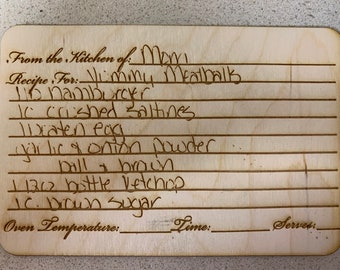 From the Kitchen of: Mom
Recipe For: Yummy Meatballs
1 lb hamburger
1 c crushed saltines
1 beaten egg
garlic & onion powder
ball & brown
1 13oz bottle ketchup
1 c brown sugar
Oven Temperature: Time: Serves: